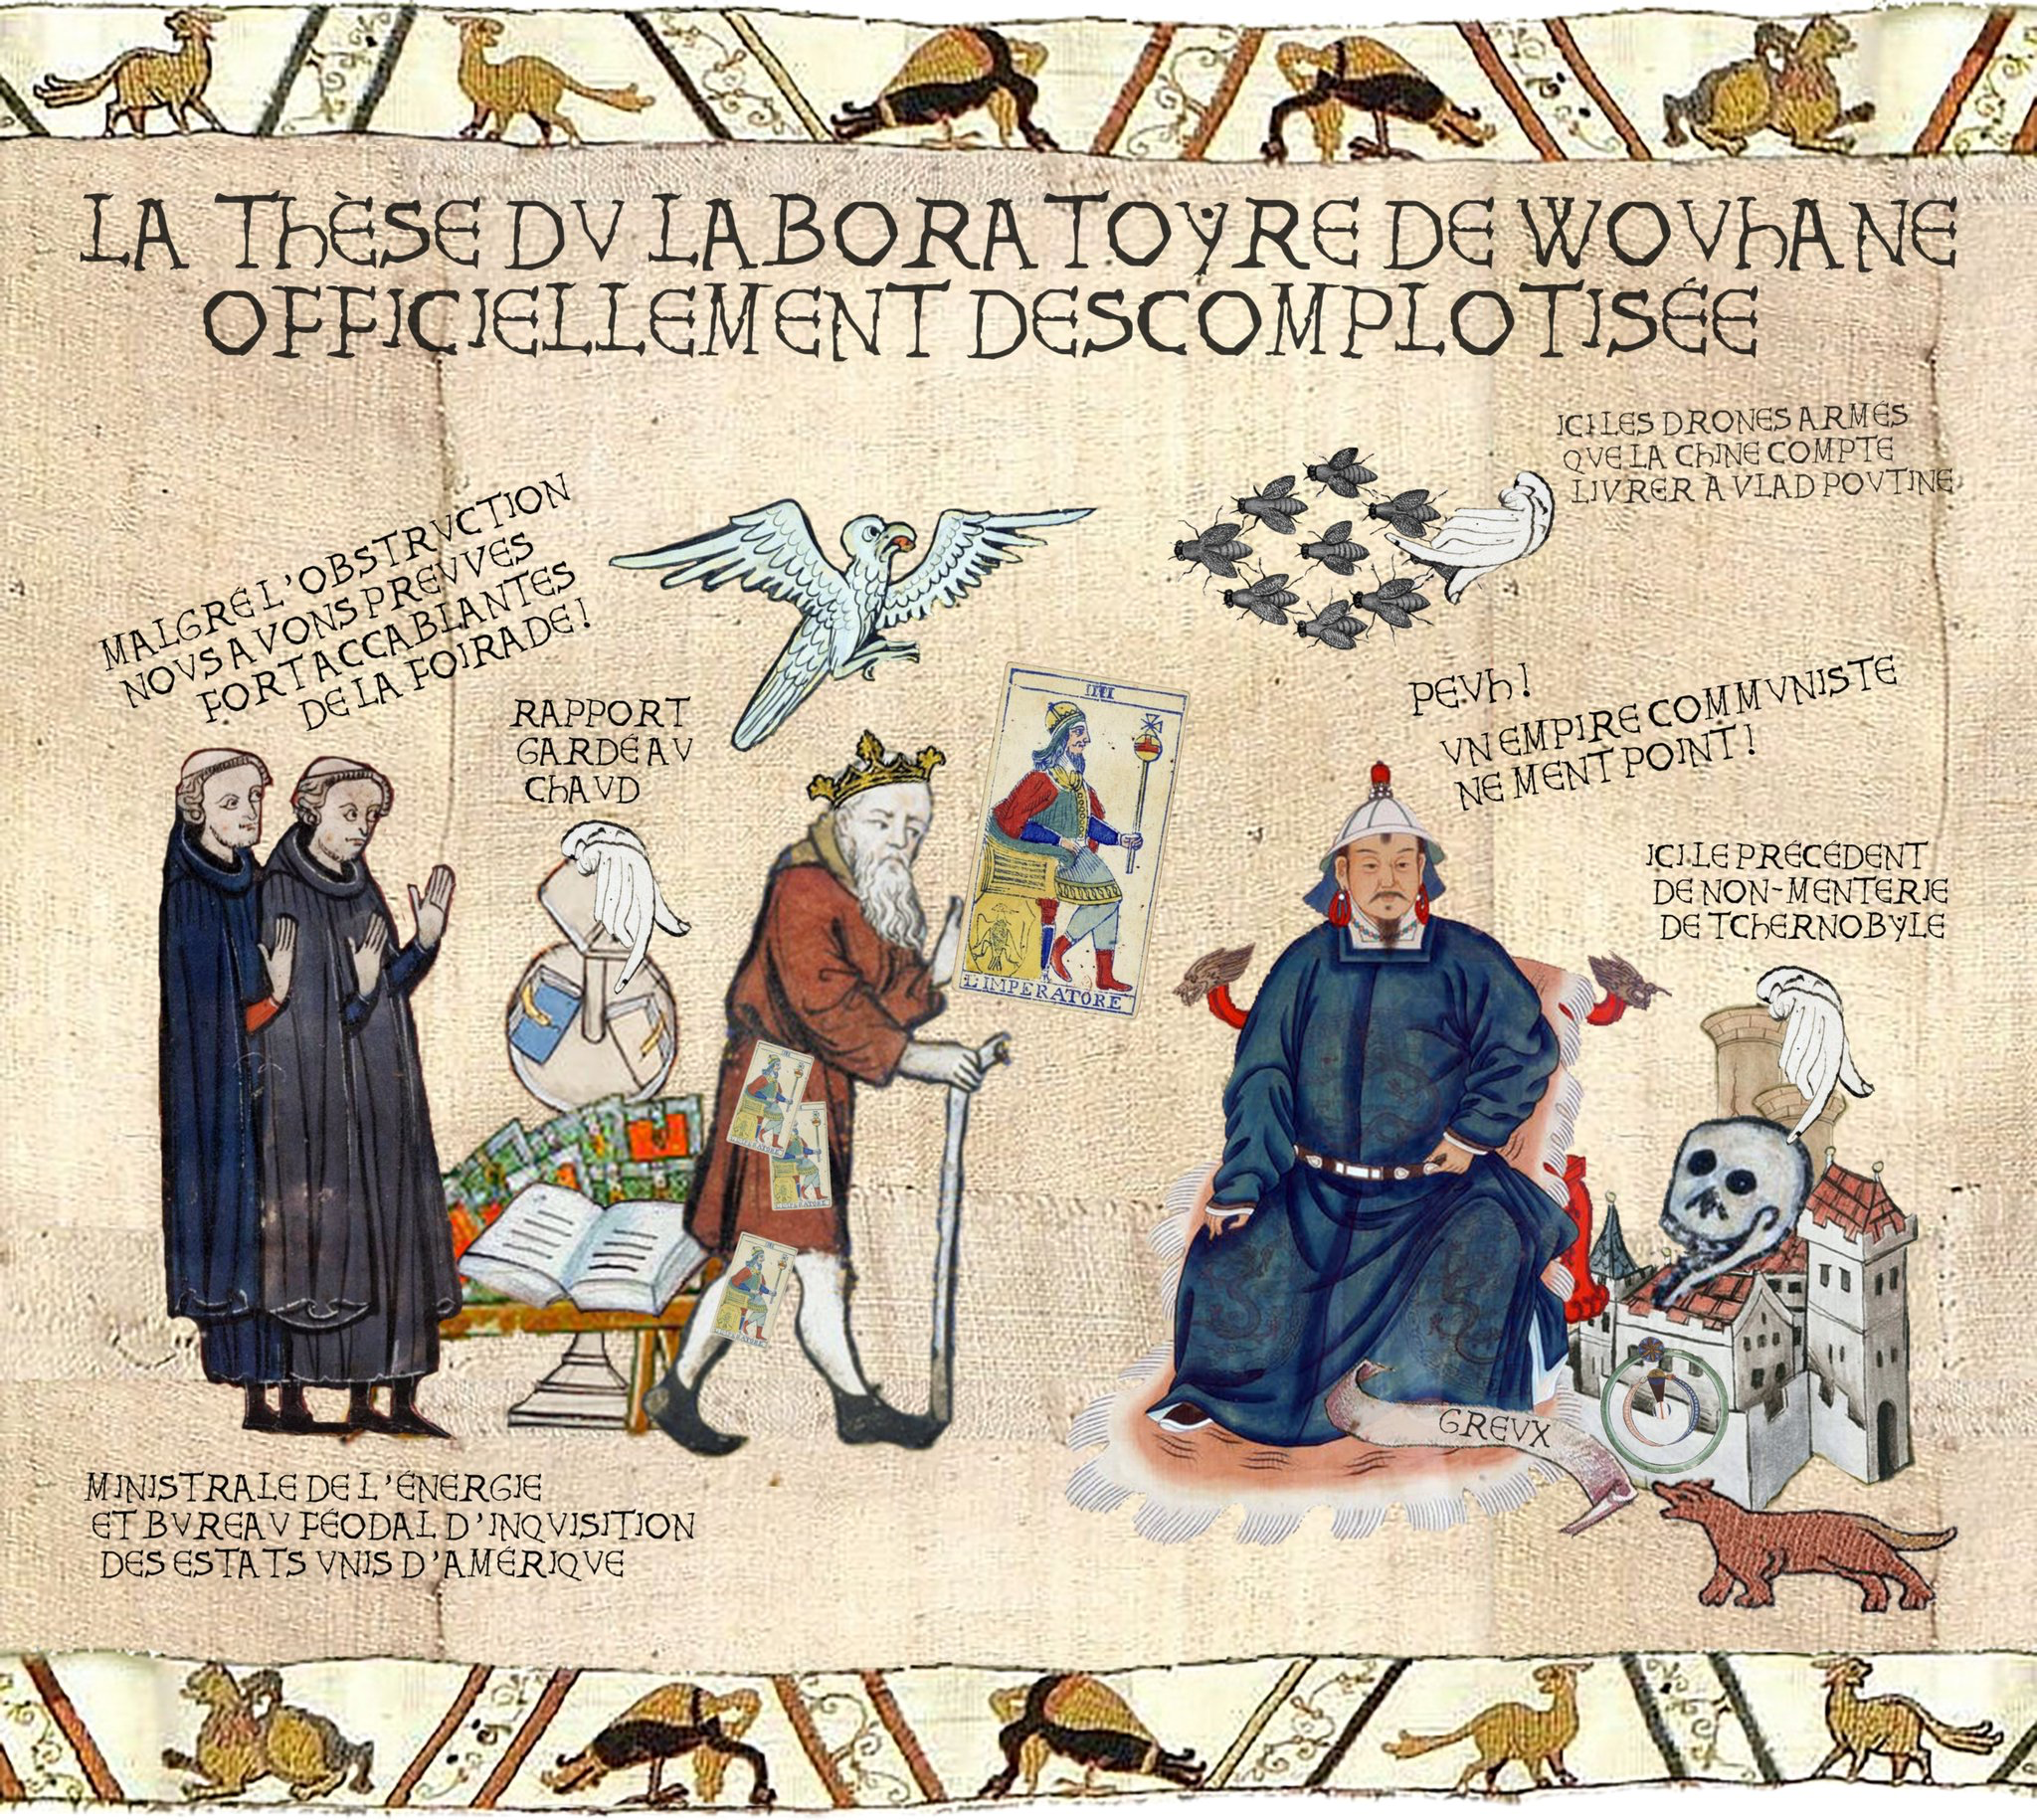 LA THÈSE DV LABORATOYRE DE WOVHANE
OFFICIELLEMENT DESCOMPLOTISÉE
ICI LES DRONES ARMÉS
QVE LA CHINE COMPTE
LIVRER A VLAD POVTINE
MALGRÉ L'OBSTRVCTION
NOVS AVONS PREVVES
FORT ACCABLANTES
DE LA FOIRADE!
RAPPORT
GARDÉ AV
CHAVD
IIII
L'IMPERATORE
PEVH!
VN EMPIRE COMMVNISTE
NE MENT POINT!
ICI LE PRÉCÉDENT
DE NON-MENTERIE
DE TCHERNOBYLE
GREVX
MINISTRALE DE L'ÉNERGIE
ET BVREAV FÉODAL D'INQVISITION
DES ESTATS VNIS D'AMÉRIQVE